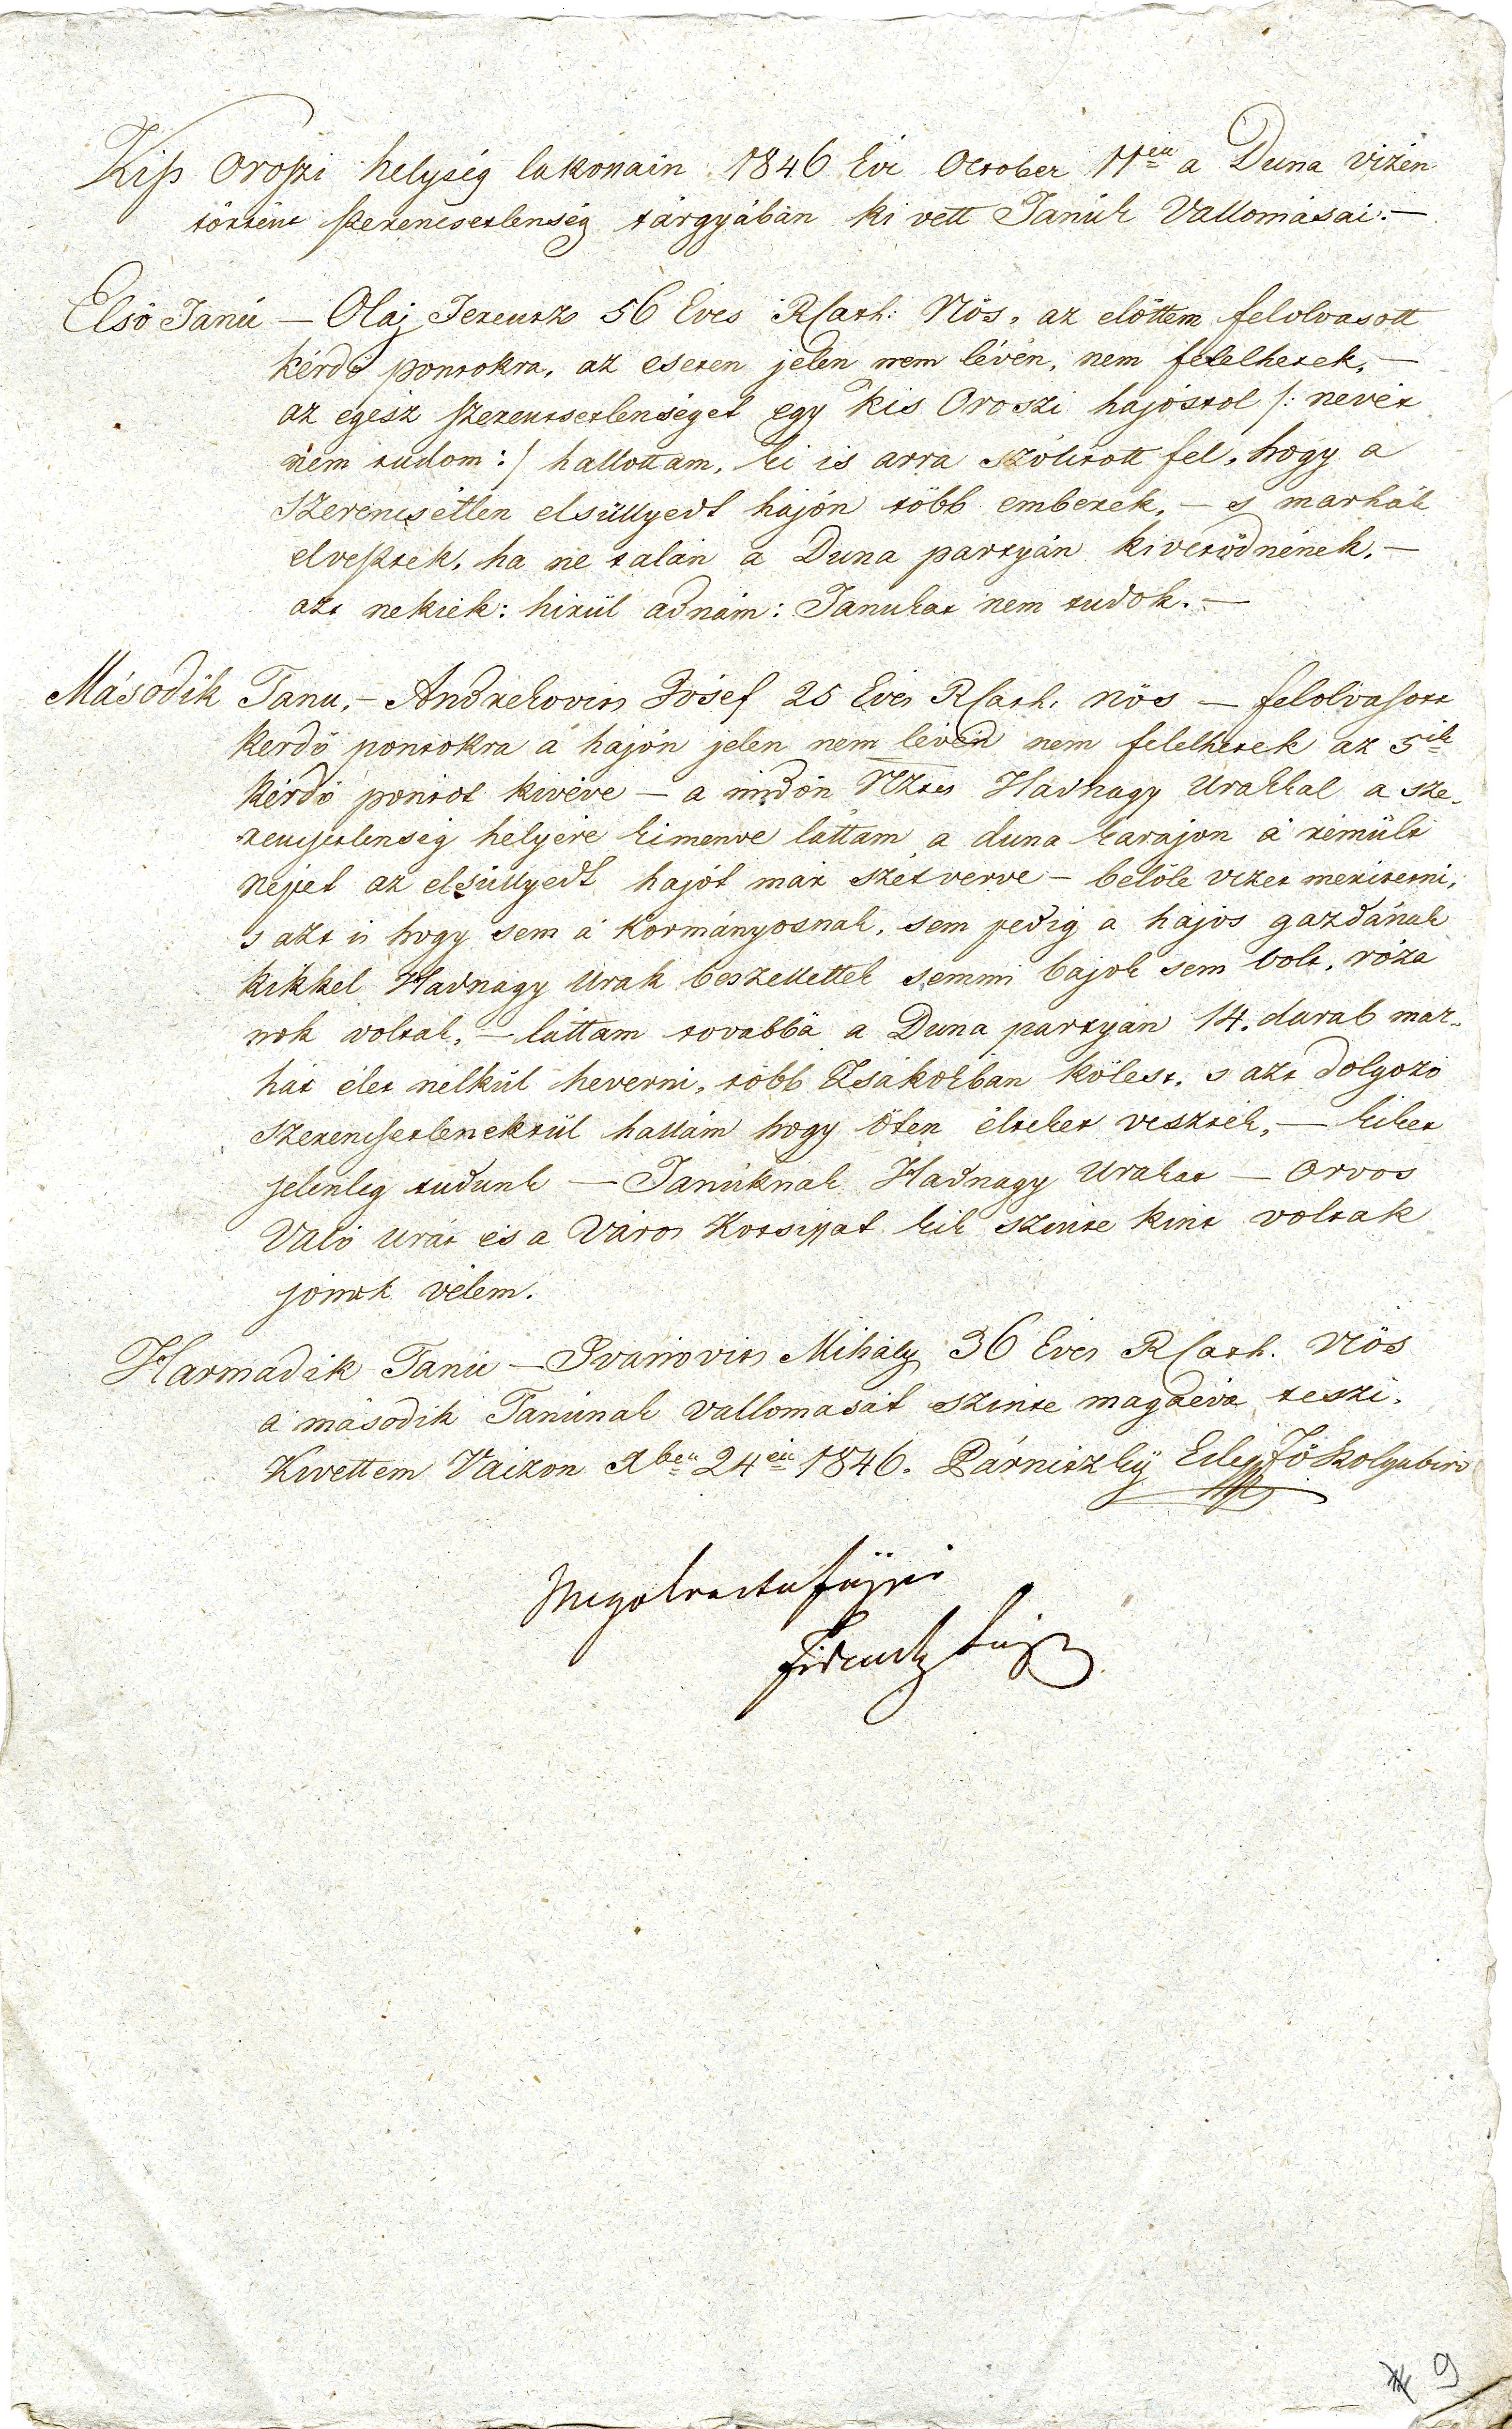 Kiss Oroszi helység lakossain 1846 Évi October 11én a Duna vizén
történt szerencsetlenség tárgyában ki vett Tanúk Vallomásai. —
Első Tanú — Olaj Ferentz 56 Éves RCath: Nős, az előttem felolvasott
kérdő pontokra, az eseten jelen nem lévén, nem felelhetek, —
az egész szerentsetlenséget egy kis Oroszi hajóstol /: nevét
nem tudom :/ hallottam, ki is arra szólított fel, hogy a
szerencsétlen elsüllyedt hajón több emberek, — s marhák
elvesztek, ha ne talán a Duna partyán kivetődnének, —
azt nekiek: hirül adnám: Tanukat nem tudok. —
Második Tanu, — Andrekovits Jósef 25 Éves RCath. nős — felolvasott
kerdő pontokra á hajón jelen nem lévén nem felelhetek az 5ik
kérdő pontot kivéve — a midőn Ntzes Hadnagy Urakkal a sze-
rencsetlenség helyére kimenve láttam a duna karajon á rémült
népet az elsüllyedt hajót már szétverve — belőle vizet meriteni,
s azt is hogy sem á Kormányosnak, sem pedig a hajós gazdának
kikkel Hadnagy Urak beszellettek semmi bajok sem volt, róza
nok voltak, — láttam továbbá a Duna partyán 14. darab mar-
hát élet nélkül heverni, több Zsákokban kölest, s azt dolgozó
szerencsetlenektül hallám hogy öten élteket veszték, — kiket
jelenleg tudunk — Tanúknak Hadnagy Urakat — Orvos
Váló Urát és a Város Kotsissat kik szinte kint voltak
jönek vélem.
Harmadik Tanú — Ivánovits Mihály 36 Éves RCath. Nős
á második Tanúnak vallomását szinte magáévá teszi.
Kivettem Vaizon Xben 24én 1846. Párniczky Ede Fő Szolgabiró
Ferentz
9